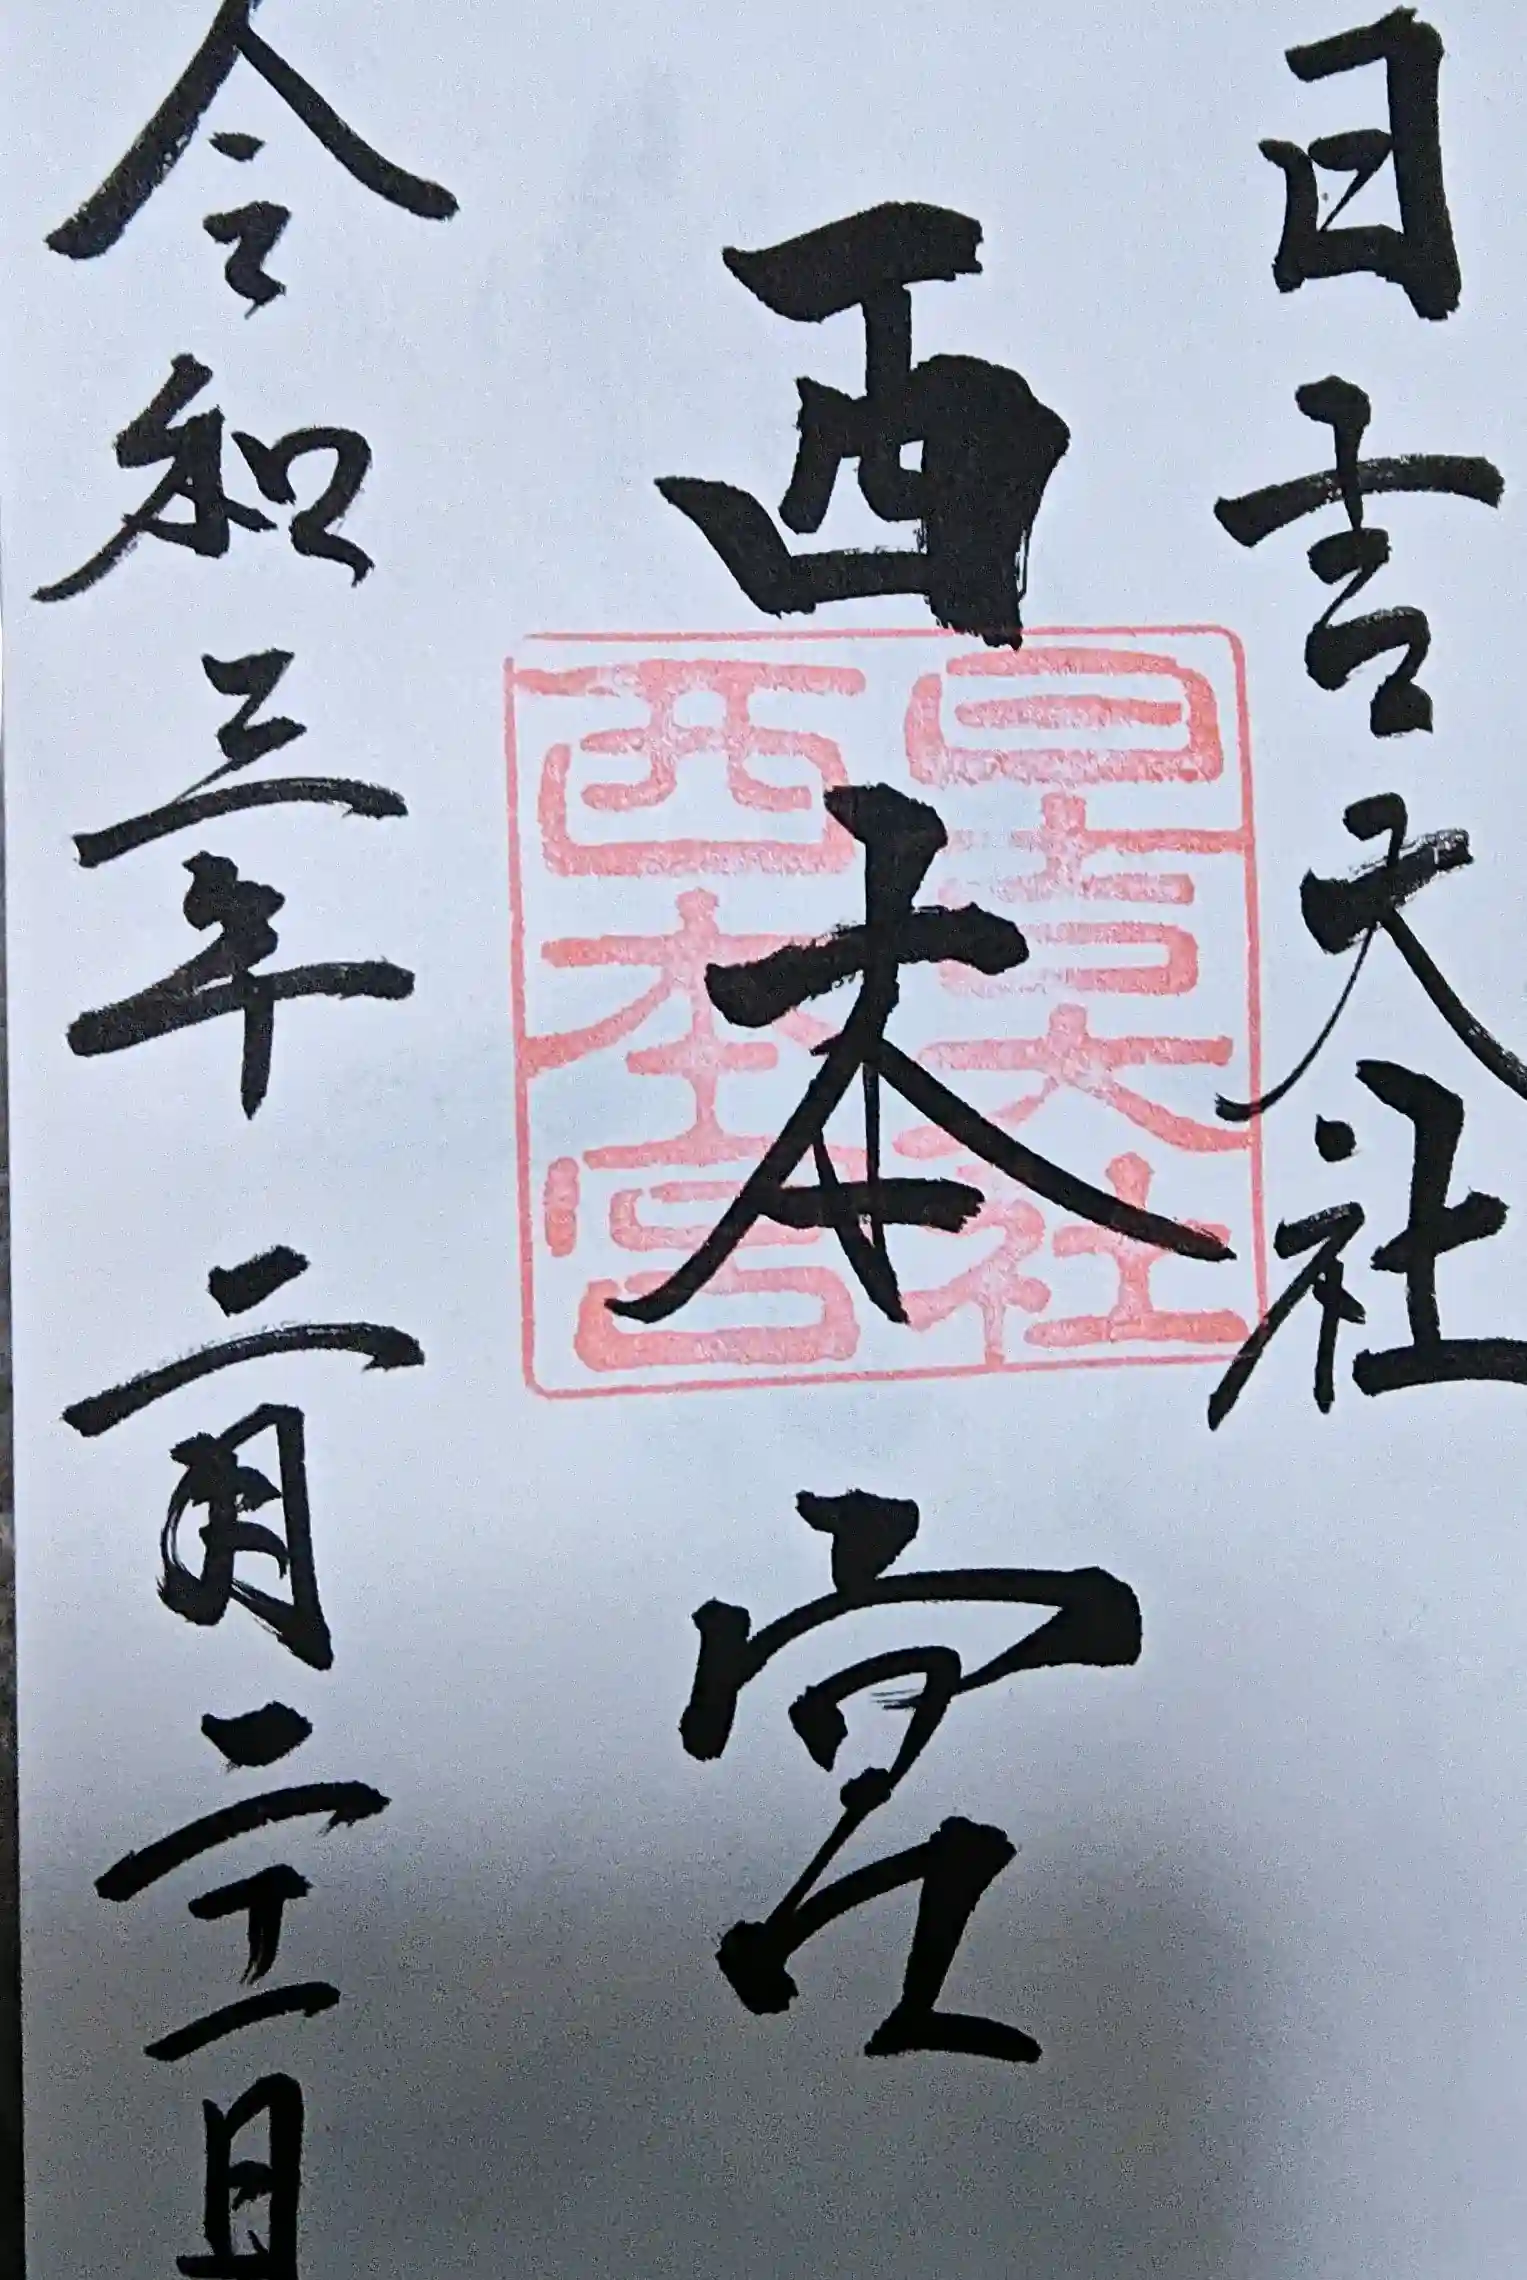 日吉大社
西本宮
令和三年二月二十一日
日吉大社
西本宮